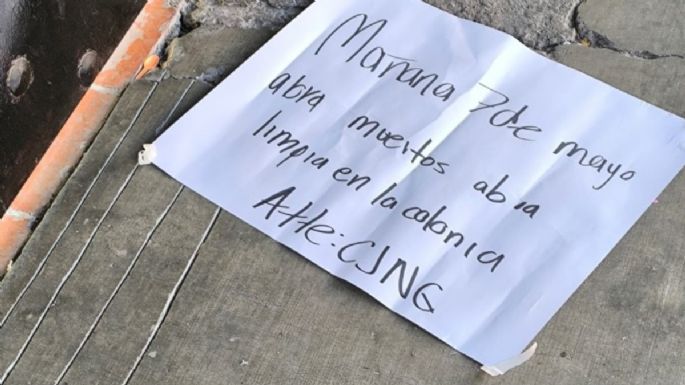 Mañana 7 de mayo
abra muertos abia
limpia en la colonia
Atte: CJNG